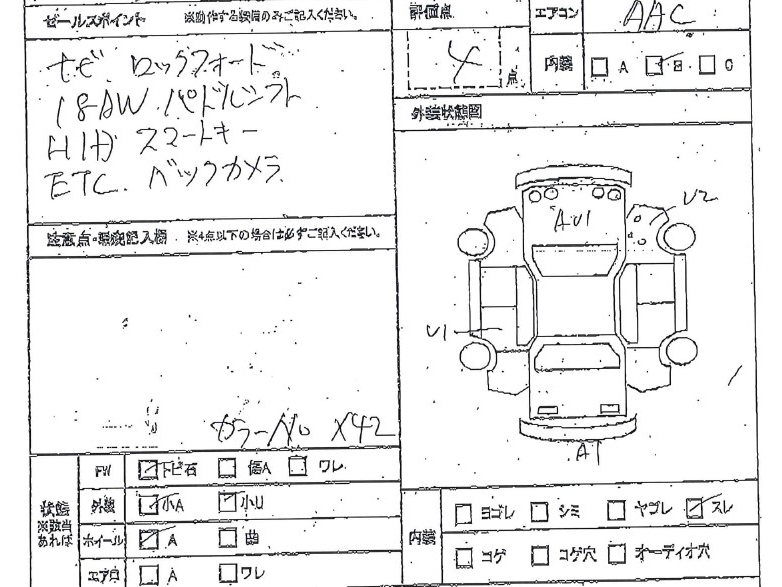 セールスポイント ※動作する装備のみご記入ください。
ナビ ロックフォード
18AW パドルシフト
HID スマートキー
ETC. バックカメラ
注意点・瑕疵記入欄 ※4点以下の場合は必ずご記入ください。
カラーNo X42
評価点 4 点
エアコン AAC
内装 A B C
外装状態図
AU1
U2
U1
A1
状態 ※該当あれば
FW 下ビ石 傷A ワレ
外装 小A 小U
ホイール A 曲
A ワレ
内装 ヨゴレ シミ ヤブレ スレ
コゲ コゲ穴 オーディオ穴